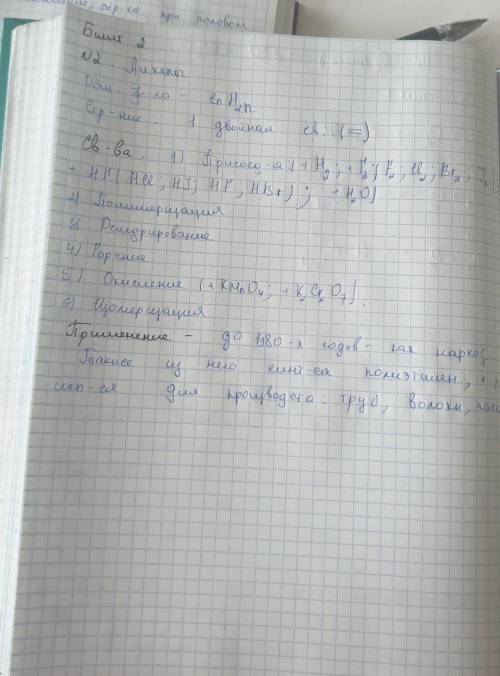 при половом
Билет 2
N2. Алкены
Общ. ф-ла - CnH2n
Стр-ние 1 двойная св. (=)
Св-ва: 1) Присоед-я: (+ H2; + Г2; F2; Cl2; Br2; J2)
+ НГ (HCl; HJ; HF; HBr); + H2O)
2) Полимеризация
3)
4) Горение
5.) Окисление (+ KMnO4; + K2Cr2O7).
6) Изомеризация
Применение - до 1980-х годов - как наркоз
Также из него синт-ся полиэтилен,
исп-ся для производста: труб, волокн,